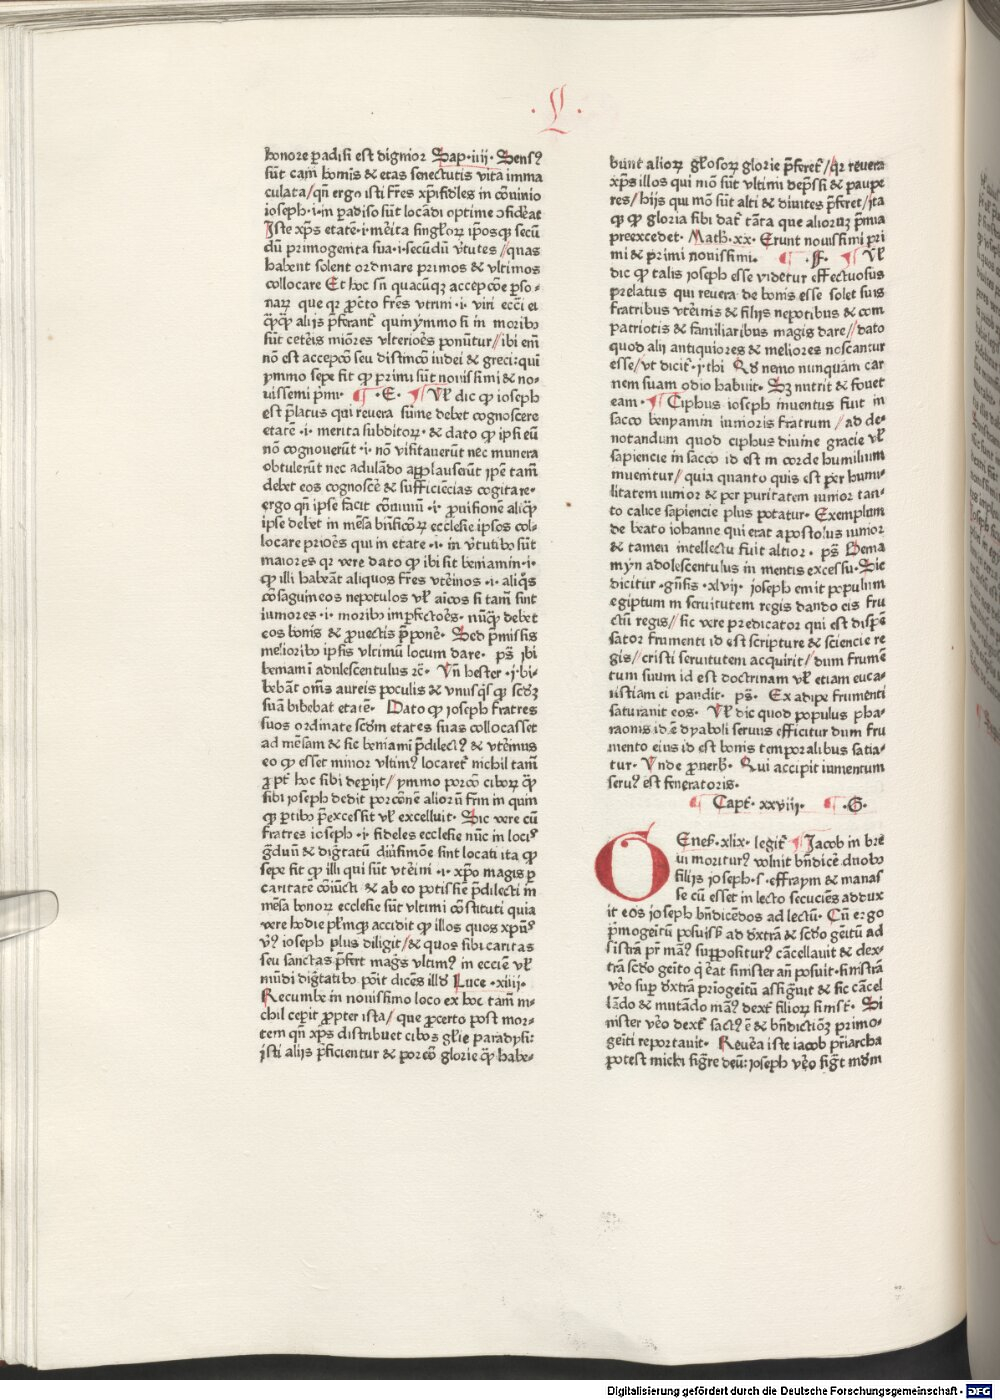 L
honore padisi est dignior Sap·iiij· Sensꝰ
sūt cani hominis & etas senectutis vita imma
culata/ qñ ergo isti frēs xp̄ifideles in cōuiuio
ioseph·i·in padiso sūt locādi optime ɔfideāt
Iste xp̄s etatē·i·merita singlorꝝ ip̄osqꝫ secū
dū primogenita sua·i·secūdū v̄tutes/ quas
habent solent ordinare primos & vltimos
collocare Et hoc sñ quacūqꝫ accepcōe pso-
narꝝ que qꝛ pcto frēs vtrini·i· viri eccĩ ei
qꝙqꝙ alijs p̄ferant᷑ quinymmo si in moribꝫ
sūt ceteris miōres vlteriores ponūtur// ibi em̄
nō est accepcō seu distinccō iudei & greci: qui
ymmo sepe fit ꝙ primi sūt nouissimi & no-
uissemi pmi· ¶ ·E· ¶ Vl̄ dic ꝙ ioseph
est p̄latus qui reuera sūme debet cognoscere
etatē·i· merita subditorꝝ· & dato ꝙ ipsi eū
nō cognouerūt·i· nō visitauerūt nec munera
obtulerūt nec aduladō applauserūt ip̄e tam̄
debet eos cognoscē & sufficiēcias cogitare·
ergo qñ ipse facit cōuiuiū·i· prouisionē aliqꝫ
ipse debet in mēsa bn̄ficorꝝ ecclesie ipsos col-
locare priorēs qui in etate·i· in v̄tutibꝫ sūt
maiores qꝛ vere dato ꝙ ibi sit beniamin·i·
ꝙ illi habeāt aliquos frēs vterinos·i· aliqꝫs
cōsaguineos nepotulos vl̄ aīcos si tam̄ sint
iuniores·i· moribꝫ imp̄fectores· nūqꝫ debet
eos bonis & prouectis p̄ponē· Sed p̄missis
melioribꝫ ipsis vltimū locum dare· ps̄ ibi
beniami adulescentulus ⁊c̄· Vñ hester·j·bi-
bebāt om̄s aureis poculis & vnusqꝫsqꝫ scd̄ꝫ
suā bibebat etatē· Dato ꝙ joseph fratres
suos ordinate scdm̄ etates suas collocasset
ad mēsam & sic beniami p̄dilectꝰ & vterinus
eo ꝙ esset minor vltimꝰ locaret᷑ nichil tam̄
ꝓpt᷑ hoc sibi deperijt/ ymmo porcō ciborꝝ qꝫ
sibi joseph dedit porcōnē aliorū frm̄ in quin
qꝫ partibꝫ p̄excessit vl̄ excelluit· Sic vere cū
fratres ioseph·i· fideles ecclesie nūc in locis
graduū & dignitatū diuisimōe sint locati ita ꝙ
sepe fit ꝙ illi qui sūt vterini·i· xp̄o magis p
caritatē cōiūcti & ab eo potissime p̄dilecti in
mēsa bonorꝝ ecclesie sūt vltimi cōstituti quia
vere hodie plrimqꝫ accidit ꝙ illos quos xp̄us
vꝰ ioseph plus diligit/ & quos sibi caritas
seu sanctas p̄fert magis vltimꝰ in eccīe vl̄
mūdi dignitatibꝫ pōit dicēs illud Luce·xiiij·
Recumbe in nouissimo loco ex hoc tam̄ ni-
chil cepit propter ista/ que procerto post mor-
tem qñ xp̄s distribuet cibos glīe paradysi:
isti alijs p̄ficientur & porcō glorie qꝫ habe-
bunt aliorꝝ glosorꝝ glorie p̄feret᷑/ qꝛ reuera
xp̄s illos qui mō sūt vltimi dep̄ssi & paupe
res/ hijs qui mō sūt alti & diuites p̄feret/ ita
qꝫ ꝙ gloria sibi dat᷑ tāta que aliorūꝫ p̄mia
preexcedet· Math·xx· Erunt nouissimi pri
mi & primi nouissimi· ¶ ·F· ¶ Vl̄
dic ꝙ talis joseph esse videtur effectuosus
prelatus qui reuera de bonis esse solet suis
fratribus vterinis & filijs nepotibus & com
patriotis & familiaribus magis dare// dato
quod alij antiquiores & meliores noscantur
esse/ vt dicit᷑·j·thi Qd̄ nemo nunquam car
nem suam odio habuit· Sꝫ nutrit & fouet
eam· ¶ Ciphus ioseph inuentus fuit in
sacco benyamin iunioris fratrum/ ad de-
notandum quod ciphus diuine gracie vl̄
sapiencie in sacco id est in corde humilium
inuenitur/ quia quanto quis est per humi-
litatem iunior & per puritatem iunior tan-
to calice sapiencie plus potatur· Exemplum
de beato iohanne qui erat apostolus iunior
& tamen intellectu fuit altior· ps̄ Benia
myn adolescentulus in mentis excessu· Sic
dicitur·gn̄sis·xlvij· joseph emit populum
egiptum in seruitutem regis dando eis fru
ctū regis/ sic vere predicator qui est dispē
sator frumenti id est scripture & sciencie re
gis// cristi seruitutem acquirit/ dum frumē
tum suum id est doctrinam vl̄ etiam euca-
ristiam ei pandit· ps̄· Ex adipe frumenti
saturauit eos· Vl̄ dic quod populus pha-
raonis id ē dyaboli seruus efficitur dum fru
mento eius id est bonis temporalibus satia-
tur· Vnde prouerb̄· Qui accipit iumentum
seruꝰ est feneratoris·
¶ Capt᷑·xxviij· ¶ ·G·
GEnes̄·xlix· legit᷑ ¶ Jacob in bre
ui moriturꝰ voluit bn̄dicē duobꝫ
filijs joseph·s·effraym & manas
se cū esset in lecto secuciēs addux
it eos joseph bn̄dicēdos ad lectū· Cū ergo
p̄mogeitū posuissꝫ ad dextrā & scdō geitū ad
sistrā pr̄ manꝰ suppositurꝰ cācellauit & dex-
trā scdō geito q̄ erat sinister an̄ posuit·sinistrā
vero sup dextrā primogeitū assignuit & sic cācel
lādo & mutādo manꝰ dext᷑ filiorꝝ sinist᷑· Si
nister vero dext᷑ factꝰ ē & bn̄dictioꝫ primo-
geiti reportauit· Reuera iste iacob p̄riarcha
potest michi figre deū: joseph vero figt᷑ mūdm
Digitalisierung gefördert durch die Deutsche Forschungsgemeinschaft - DFG